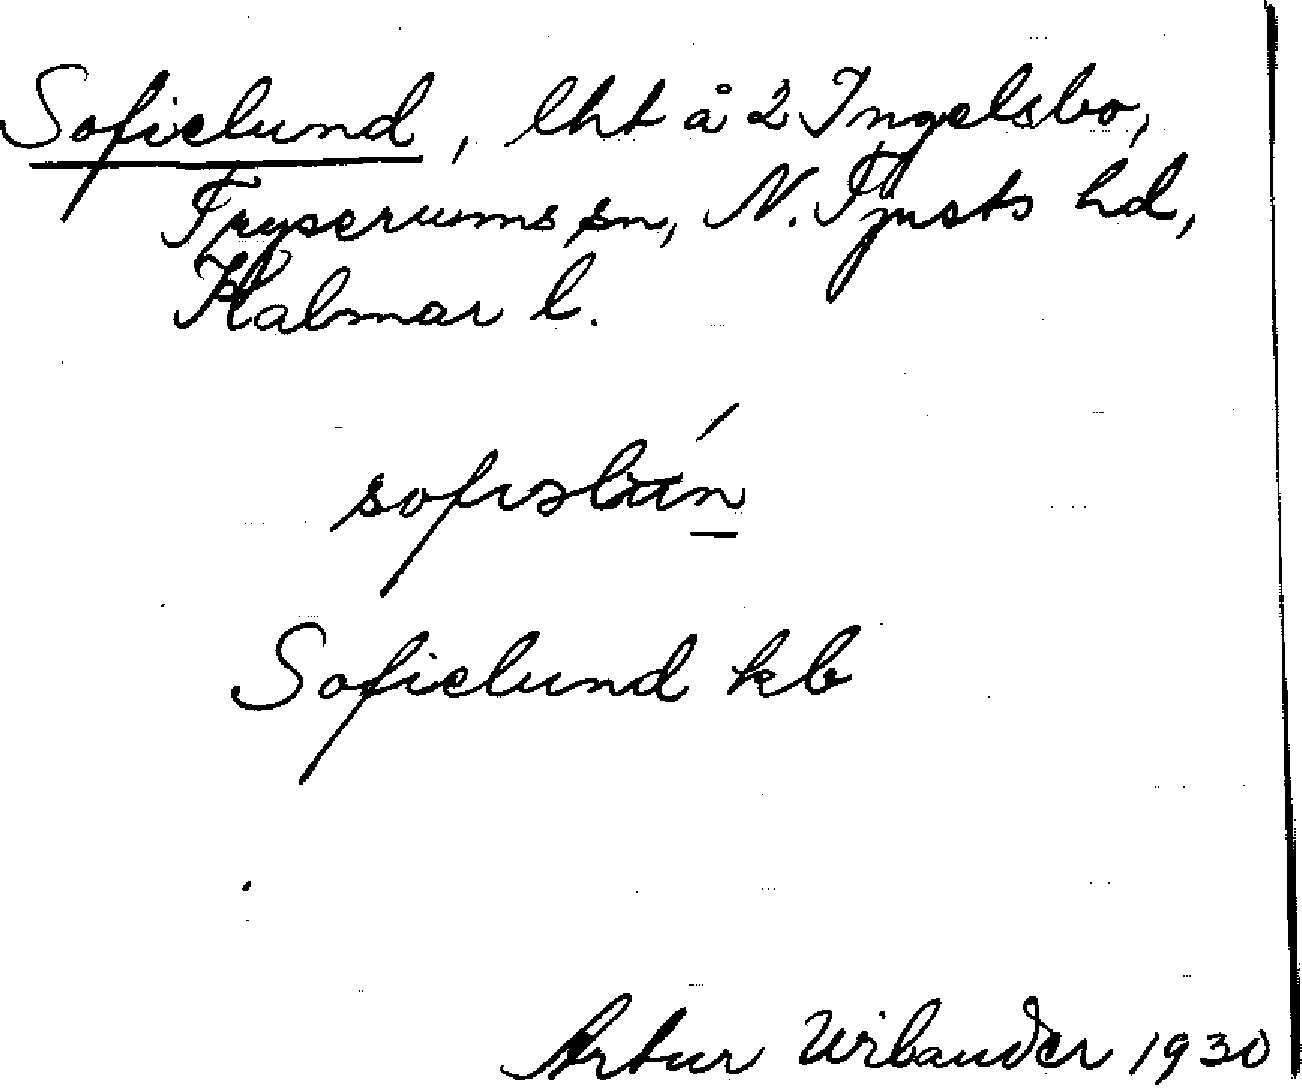 Sofielund, lht å 2 Ingelsbo,
Fryserums sn, N. Tjusts hd,
Kalmar l.
Sofielund kb
Artur Wilander 1930